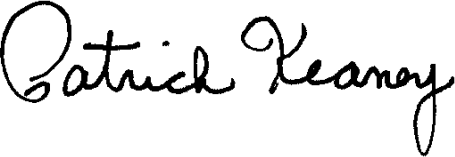 Patrick Keaney